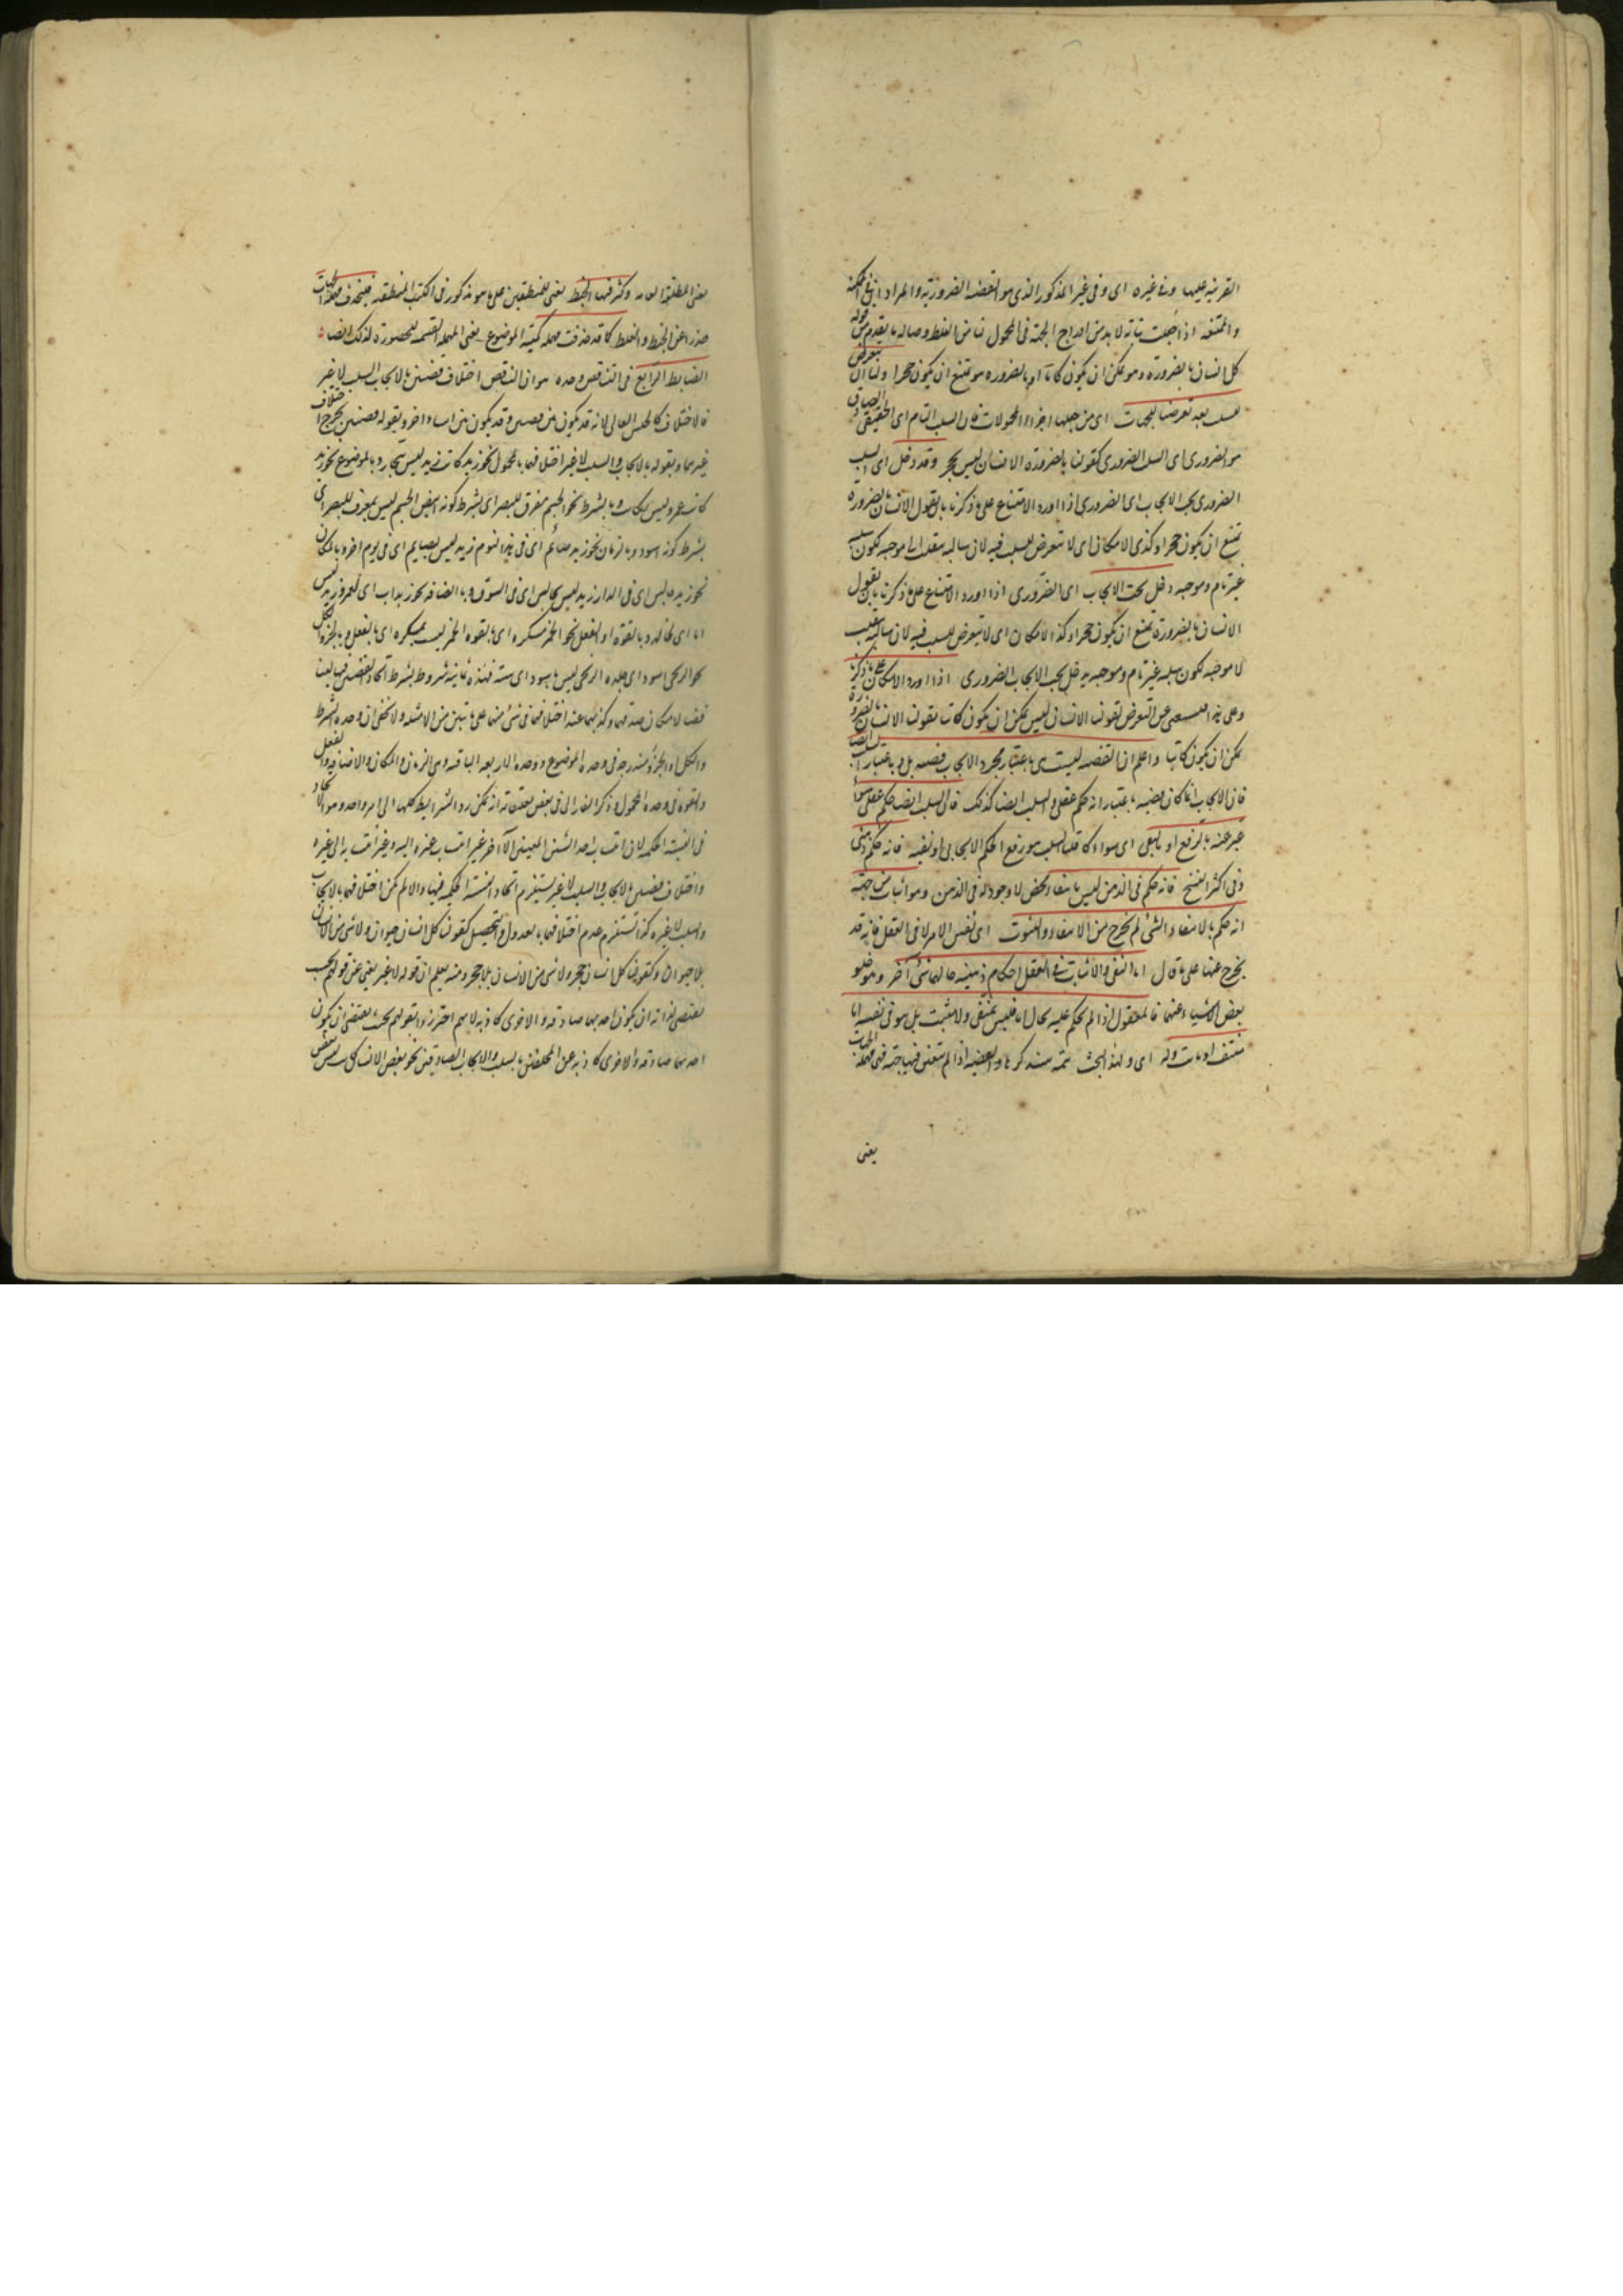 القرينة عليها وفى غيره اى وفى غير المذكور الذى هو القضية الضرورية والمراد
والممتنعة اذا جعلت بتاتة لابد من ادراج الجهة فى المحمول امنا من الغلط وصاله ما يقدم من قوله
كل انسان بالضرورة هو يمكن ان يكون كاتبا او بالضرورة هو يمتنع ان يكون حجرا ولنا ان نتعرض
للسلب بعد تعرضنا للجهات اى من جعلها اجزاء المحولات فان السلب التام اى الحقيقى
هو الضرورى اى السلب الضرورى كقولنا بالضرورة الانسان ليس بحجر وقد دخل اى السلب
الضرورى تحت الايجاب اى الضرورى اذا اورد الامتناع على ما ذكرنا بان يقول الانسان بالضرورة
يمتنع ان يكون حجرا وكذى الامكان اى لا نتعرض للسلب فيه لان سالبه ينقلب الى موجبه لكون سلبه
غير تام وموجبه دخل تحت الايجاب اى الضرورى اذا اورد الامتناع على ما ذكرنا بان يقول
الانسان بالضرورة يمتنع ان يكون حجرا وكذا الامكان اى لا يتعرض للسلب فيه لان سالبه ينقلب
لا موجبه لكون سلبه غير تام وموجبه يدخل تحت الايجاب الضرورى اذا اورد الامكان على ما ذكرنا
وعلى هذا عن التعرض لقولنا الانسان ليس يمكن ان يكون كاتبا بقولنا الانسان بالضرورة
يمكن ان يكون كاتبا واعلم ان القضية ليست هى باعتبار مجرد الايجاب قضية بل وباعتبار السلب ايضا
فان الايجاب انما كان قضية باعتبار انه حكم عقلى والسلب ايضا كذلك فان السلب ايضا حكم عقلى سواء
عبر عنه بالرفع او بالنفى اى سواء كان السلب هو رفع الحكم الايجابى او نفيه فانه حكم ذهنى
وفى اكثر النسخ فانه حكم فى الذهن ليس بانتفاء محض لا وجود له فى الذهن وهو اثبات من جهة
انه حكم بالانتفاء والشئ لم يخرج من الانتفاء والثبوت اى نفس الامر لا فى العقل فانه قد
يخرج عنها على ما قال اما النفى والاثبات فى العقل احكام ذهنية حالهما شئ آخر وهو خلو
بعض الاشياء عنهما فالمعقول اذا لم يحكم عليه بحال ما فليس بمنفى ولا مثبت بل هو فى نفسه اما
منتف او ثابت وله اى ولهذا البحث تتمة سنذكرها والقضية اذا لم يتعين فيها جهة فهى مهملة الجهات
يعنى
يعنى المطلقة العامة وكثر فيها الخبط يعنى للمنطقيين على ما هو مذكور فى الكتب المنطقية فليحذف مهملة الجهات
حذرا عن الخبط والغلط كما قد حذفت مهملة كمية الموضوع يعنى المهملة القسيمة للمحصورة لذلك ايضا
الضابط الرابع فى التناقض وحده هو ان التناقض اختلاف قضيتين بالايجاب والسلب لا غير
فالاختلاف كالجنس العالى لانه قد يكون بين قضيتين وقد يكون بين اشياء اخر وبقوله قضيتين يخرج اختلاف
غيرهما وبقوله بالايجاب والسلب لا غير اختلافهما بالمحمول نحو زيد كاتب زيد ليس بنجار وبالموضوع نحو زيد
كاتب عمرو ليس بكاتب وبالشرط نحو الجسم مفرق للبصر اى بشرط كونه ابيض الجسم ليس بمفرق للبصر اى
بشرط كونه اسود وبالزمان نحو زيد صائم اى فى هذا اليوم زيد ليس بصايم اى فى يوم آخر وبالمكان
نحو زيد جالس اى فى الدار زيد ليس بجالس اى فى السوق وبالاضافة نحو زيد اب اى لعمرو زيد ليس
ابا اى لخالد وبالقوة او الفعل نحو الخمر مسكرة اى بالقوة الخمر ليست بمسكرة اى بالفعل وبالجزء والكل
نحو الزنجى اسود اى جلده الزنجى ليس باسود اى سنه فهذه ثمانية شروط بشرط اتحاد القضيتين فيها ليتناقضا
لامكان صدقهما وكذبهما عند اختلافهما فى شئ منها على ما تبين من الامثلة ولا يخفى ان وحدة الشرط
والكل والجزء مندرجة فى وحدة الموضوع ووحدة الاربعة الباقية وهى الزمان والمكان والاضافة والفعل
والقوة فى وحدة المحمول وذكر الفارابى فى بعض تعليقاته انه يمكن رد الشرايط كلها الى امر واحد وهو الاتحاد
فى النسبة الحكمية لان انتساب احد الشيئين المعينين الى الآخر غير انتساب غيره اليه وغير انتسابه الى غيره
واختلاف قضيتين بالايجاب والسلب لا غير يستلزم اتحاد النسبة الحكمية فيهما والا لم يكن اختلافهما بالايجاب
والسلب لا غير وكذا يستلزم عدم اختلافهما بالعدول والتحصيل كقولنا كل انسان حيوان ولا شئ من الانسان
بلا حيوان وكقولنا كل انسان حجر ولا شئ من الانسان بلا حجر ومنه يعلم ان قوله لا غير يغنى عن قولهم بحيث
يقتضى لذاته ان يكون احدهما صادقة والاخرى كاذبة لانهم احترزوا بقولهم بحيث يقتضى ان يكون
احدهما صادقة والاخرى كاذبة عن المختلفتين بالسلب والايجاب الصادقتين نحو بعض الانسان كاتب ليس بعض